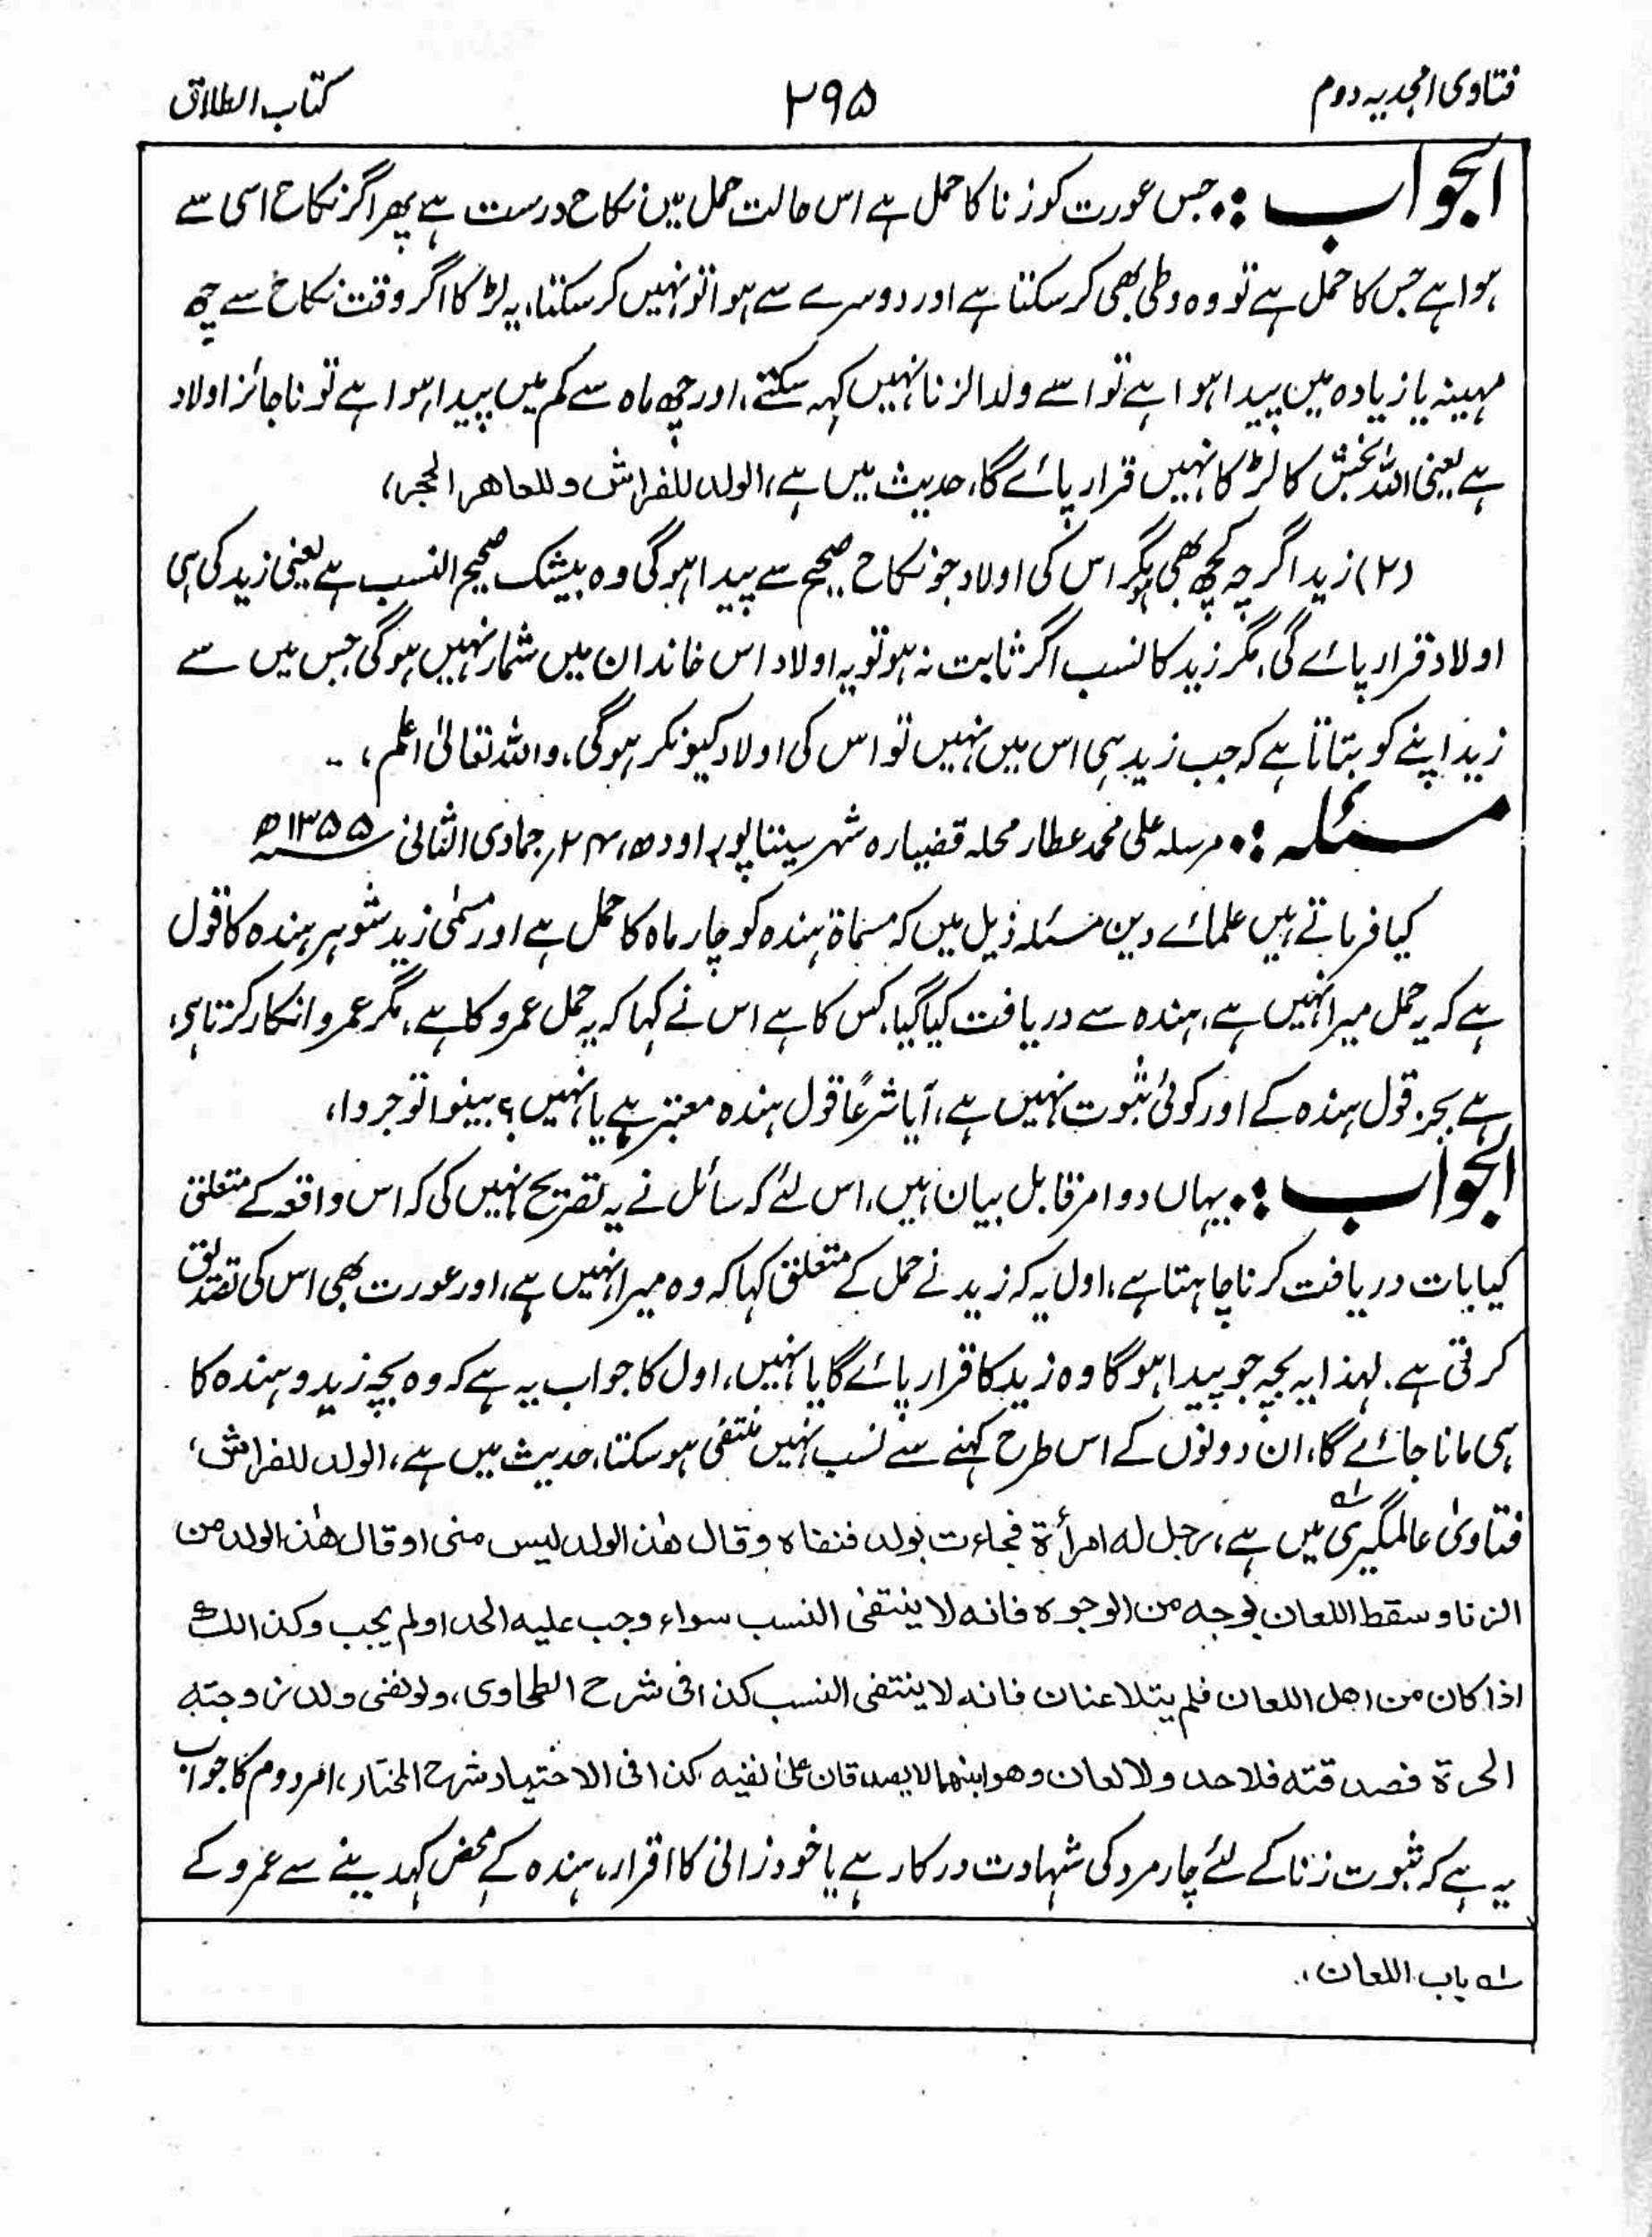 فتاوی امجدیہ دوم
۲۹۵
کتاب الطلاق
الجواب :۔ جس عورت کو زنا کا حمل ہے اس حالت حمل میں نکاح درست ہے پھر اگر نکاح اسی سے
ہوا ہے جس کا حمل ہے تو وہ وطی بھی کر سکتا ہے اور دوسرے سے ہوا تو نہیں کر سکتا، یہ لڑکا اگر وقت نکاح سے چھ
مہینہ یا زیادہ میں پیدا ہوا ہے تو اسے ولد الزنا نہیں کہہ سکتے، اور چھ ماہ سے کم میں پیدا ہوا ہے تو ناجائز اولاد
ہے یعنی اللہ بخش کا لڑکا نہیں قرار پائے گا، حدیث میں ہے، الولد للفراش وللعاھر الحجر،
(۲) زید اگرچہ کچھ بھی ہو مگر اس کی اولاد جو نکاح صحیح سے پیدا ہوگی وہ بیشک صحیح النسب ہے یعنی زید کی ہی
اولاد قرار پائے گی، مگر زید کا نسب اگر ثابت نہ ہو تو یہ اولاد اس خاندان میں شمار نہیں ہوگی جس میں سے
زید اپنے کو بتاتا ہے کہ جب زید ہی اس میں نہیں تو اس کی اولاد کیونکر ہوگی، واللہ تعالیٰ اعلم، ۔۔
مسئلہ :۔ مرسلہ علی محمد عطار محلہ قضیارہ شہر سیتاپور اودھ، ۲۴، جمادی الثانی ۱۳۵۵ھ
کیا فرماتے ہیں علمائے دین مسئلہ ذیل میں کہ مسماۃ ہندہ کو چار ماہ کا حمل ہے اور مسمی زید شوہر ہندہ کا قول
ہے کہ یہ حمل میرا نہیں ہے، ہندہ سے دریافت کیا گیا، کس کا ہے اس نے کہا کہ یہ حمل عمرو کا ہے، مگر عمرو انکار کرتا ہی،
ہے بجز قول ہندہ کے اور کوئی ثبوت نہیں ہے، آیا شرعًا قول ہندہ معتبر ہے یا نہیں؟ بینوا توجروا،
الجواب :۔ یہاں دو امر قابل بیان ہیں، اس لئے کہ سائل نے یہ تصریح نہیں کی کہ اس واقعہ کے متعلق
کیا بات دریافت کرنا چاہتا ہے، اول یہ کہ زید نے حمل کے متعلق کہا کہ وہ میرا نہیں ہے، اور عورت بھی اس کی تصدیق
کرتی ہے. لہذا یہ بچہ جو پیدا ہوگا وہ زید کا قرار پائے گا یا نہیں، اول کا جواب یہ ہے کہ وہ بچہ زید و ہندہ کا
ہی مانا جائے گا، ان دونوں کے اس طرح کہنے سے نسب نہیں منتفی ہو سکتا، حدیث میں ہے، الولد للفراش،
فتاویٰ عالمگیری لہ میں ہے، رجل لہ امرأۃ فجاءت بولد فنفاہ وقال ھذا الولد لیس منی او قال ھذا الولد من
الزنا وسقط اللعان بوجہ من الوجوہ فانہ لا ینتفی النسب سواء وجب علیہ الحد او لم یجب وکذالک
اذا کان من اھل اللعان فلم یتلاعنان فانہ لا ینتفی النسب کذا فی شرح الطحاوی، ولو نفی ولد زوجتہ
الحرۃ فصدقتہ فلا حد ولا لعان وھو ابنھما لا یصدقان علیٰ نفیہ کذا فی الاختیار شرح المختار، امر دوم کا جواب
یہ ہے کہ ثبوت زنا کے لئے چار مرد کی شہادت درکار ہے یا خود زانی کا اقرار، ہندہ کے محض کہدینے سے عمرو کے
لہ باب اللعان،